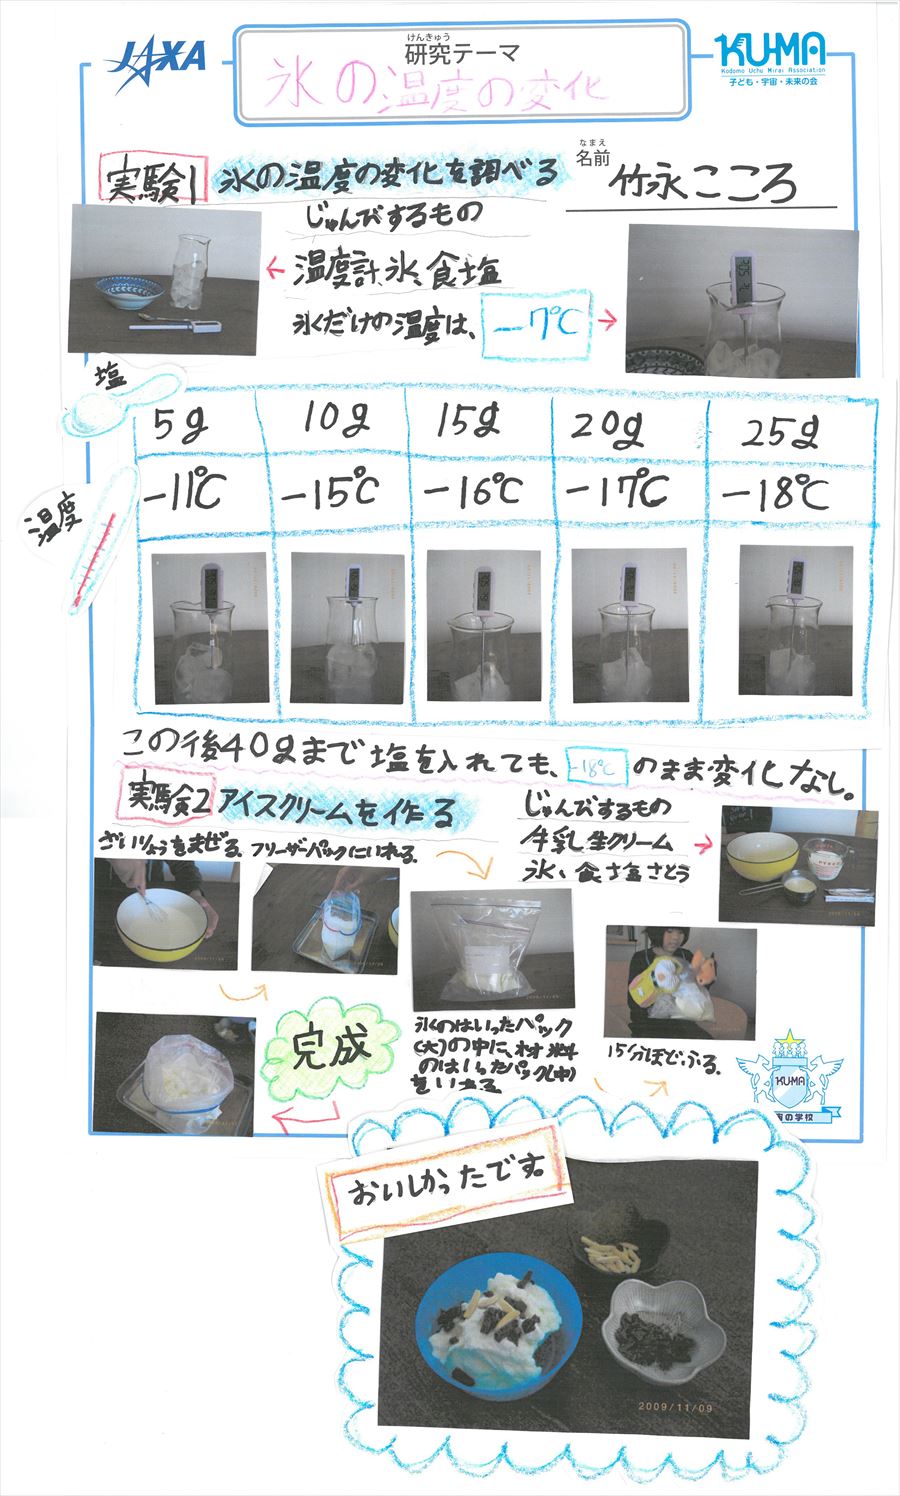 JAXA
けんきゅう
研究テーマ
氷の温度の変化
KU-MA
Kodomo Uchu Mirai Association
子ども・宇宙・未来の会
実験1
氷の温度の変化を調べる
なまえ
名前
竹永こころ
じゅんびするもの
温度計、氷、食塩
氷だけの温度は、
-7℃
塩
5g 10g 15g 20g 25g
温度
-11℃ -15℃ -16℃ -17℃ -18℃
この後40gまで塩を入れても、-18℃のまま変化なし。
実験2
アイスクリームを作る
じゅんびするもの
牛乳 生クリーム
氷、食塩 さとう
ざいりょうをまぜる。
フリーザーパックにいれる。
氷のはいったパック
(大)の中に、材料
のはいったパック(中)
をいれる
15分ほどふる。
完成
KUMA
宙の学校
おいしかったです。
2009/11/09